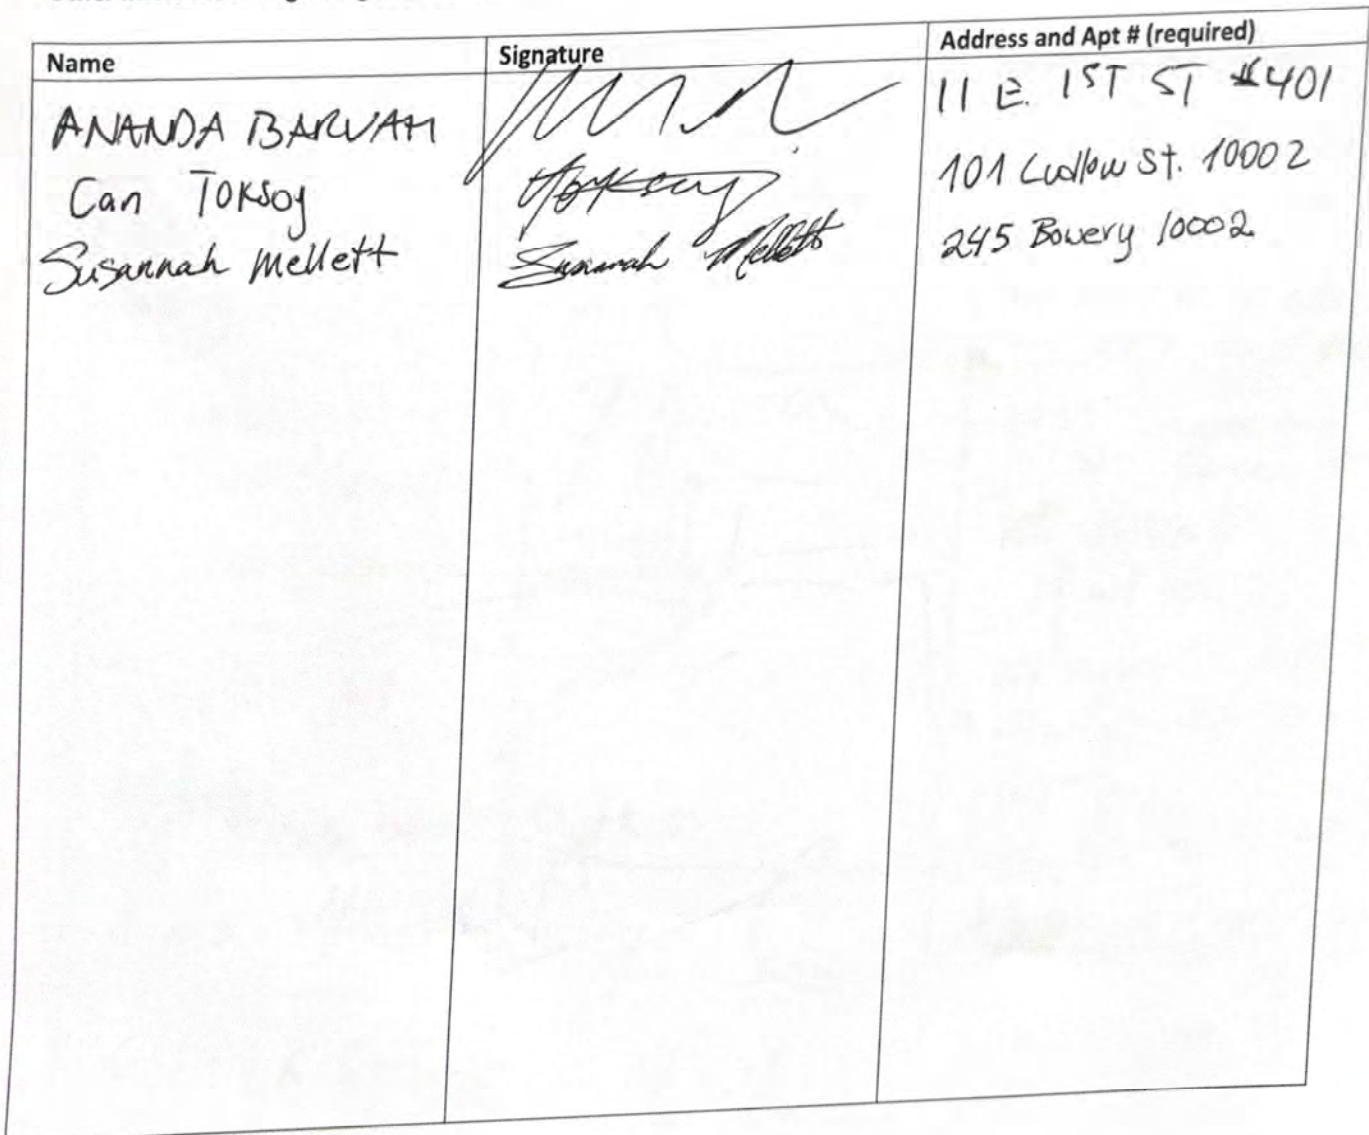 Name Signature Address and Apt # (required)
ANANDA BARUAH 11 E. 1ST ST #401
Can Toksoy 101 Ludlow St. 10002
Susannah Mellett Susannah Mellett 245 Bowery 10002